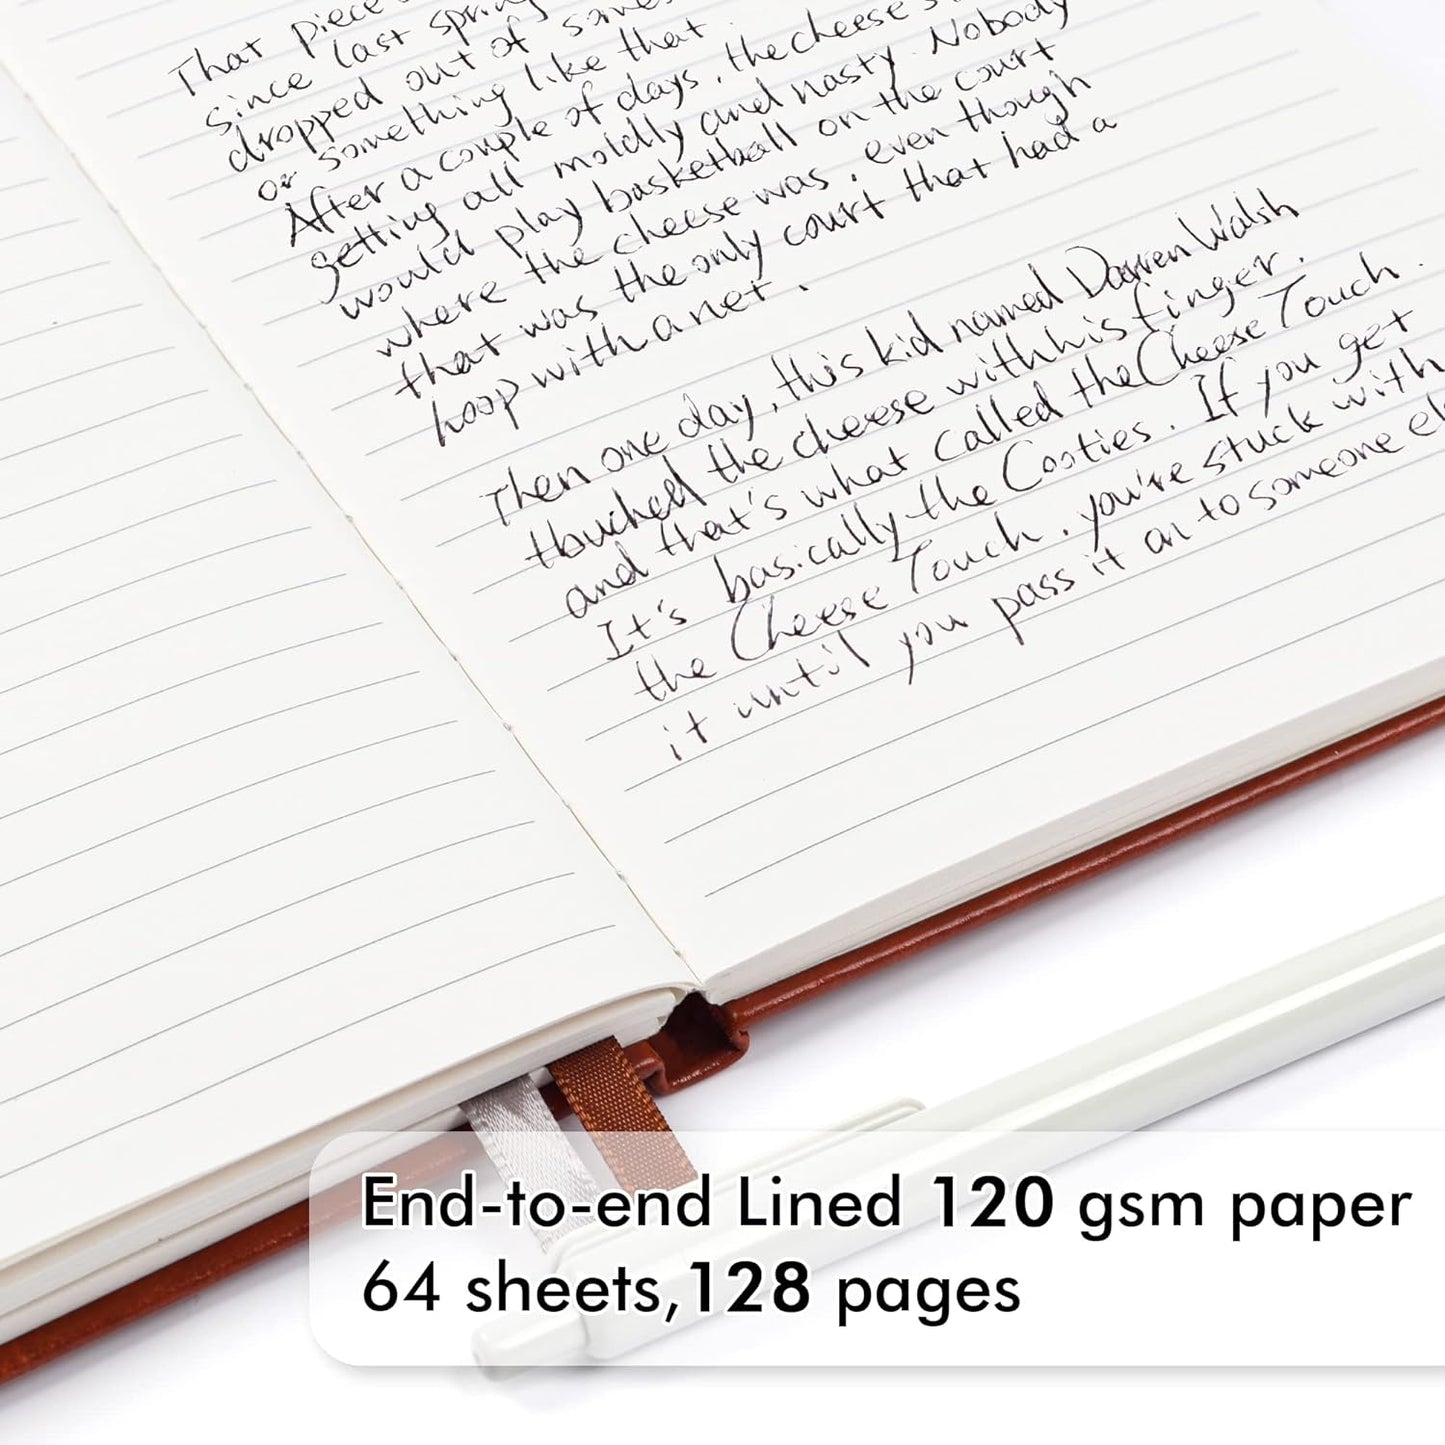 That piece
since last spring
dropped out of
or something like that
After a couple of days, the cheese's
getting all moldly and nasty. Nobody
would play basketball on the court
where the cheese was, even though
that was the only court that had a
hoop with a net.
Then one day, this kid named Darren Walsh
thouched the cheese with his finger.
and that's what called the Cheese Touch.
It's basically the Cooties. If you get
the Cheese Touch, you're stuck with
it until you pass it on to someone
End-to-end Lined 120 gsm paper
64 sheets,128 pages